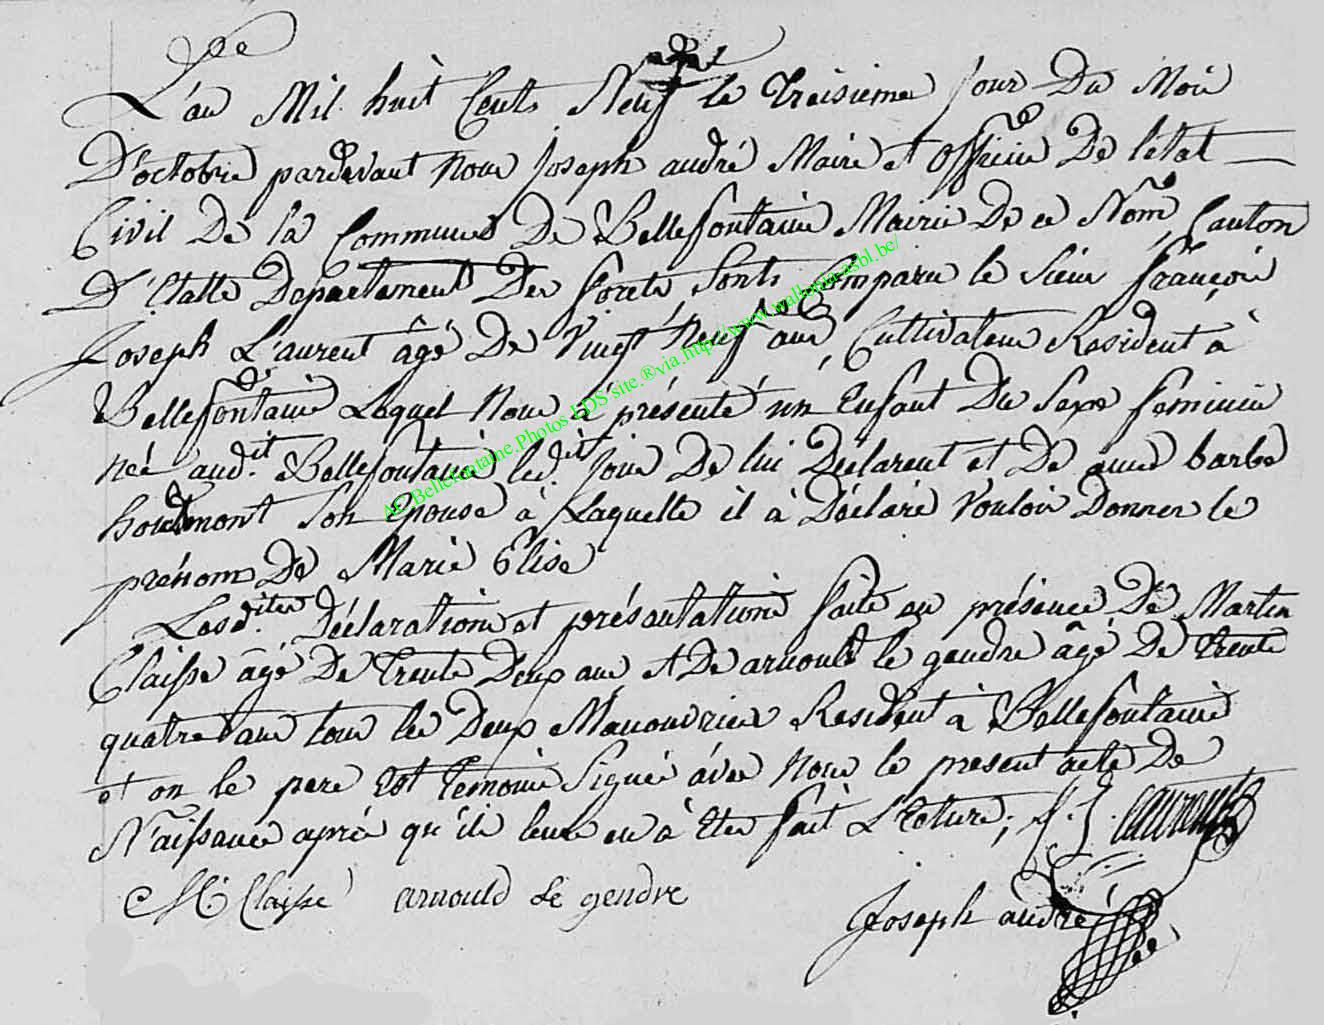 L'an Mil huit Cents Neuf le Troisieme Jour Du Mois
D'octobre pardevant Nous Joseph andré Maire et Officier De letat
Civil De la Commune De Bellefontaine Mairie De ce Nom, Canton
D'Etalle Departement Des forets Sont Comparu le Sieur françois
Joseph L'aurent âgé De Vingt Neuf ans, Cultivateur Resident à
Bellefontaine Lequel Nous à présenté un Enfant Du Sexe feminin
née aud.it Bellefontaine led.it Jour De lui Declarent et De anne barbe
houdmont Son Epouse à Laquelle il à Déclaré Vouloir Donner le
prénom De Marie Elise
Lesd.ites Déclaration et présentation faite en présence De Martin
Claisse âgé De Trente Deux ans et De arnould le gendre âgé De trente
quatre ans tous les Deux Manouvrier Resident à Bellefontaine
et on le pere Et Temoins Signé avec Nous le present acte De
N'aissance aprés qu'ils leurs en à Eter fait L'Ecture; f. J. Laurent
M Claisse arnould Le gendre
Joseph andré
AC.Bellefontaine.Photos LDS site.®via.http://www.wallonia-asbl.be/